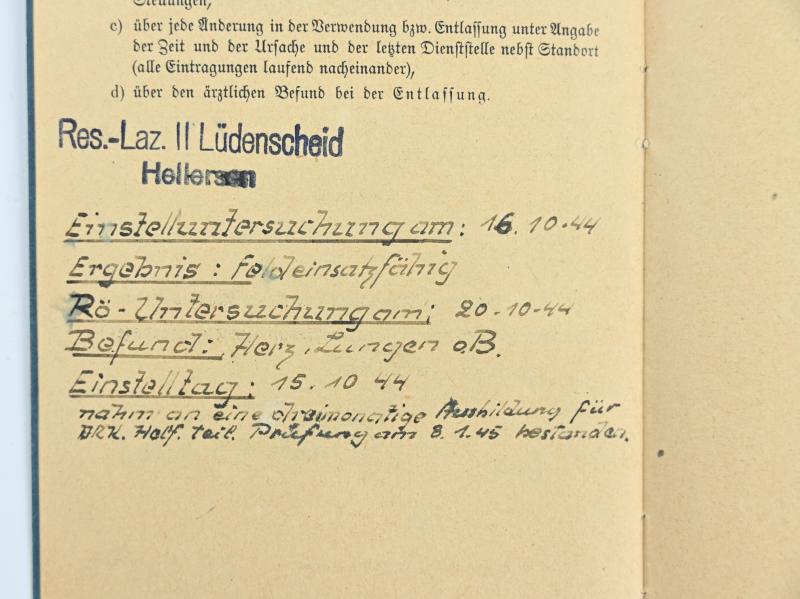 Steuungen,
c) über jede Änderung in der Verwendung bzw. Entlassung unter Angabe
der Zeit und der Ursache und der letzten Dienststelle nebst Standort
(alle Eintragungen laufend nacheinander),
d) über den ärztlichen Befund bei der Entlassung.
Res.-Laz. II Lüdenscheid
Hellersen
Einstelluntersuchung am: 16. 10-44
Ergebnis: Feldeinsatzfähig
Rö-Untersuchung am: 20-10-44
Befund: Herz, Lungen o.B.
Einstelltag: 15. 10 44
nahm an eine dreimonatige Ausbildung für
DRK. Helf. teil. Prüfung am 8. 1. 45 bestanden.